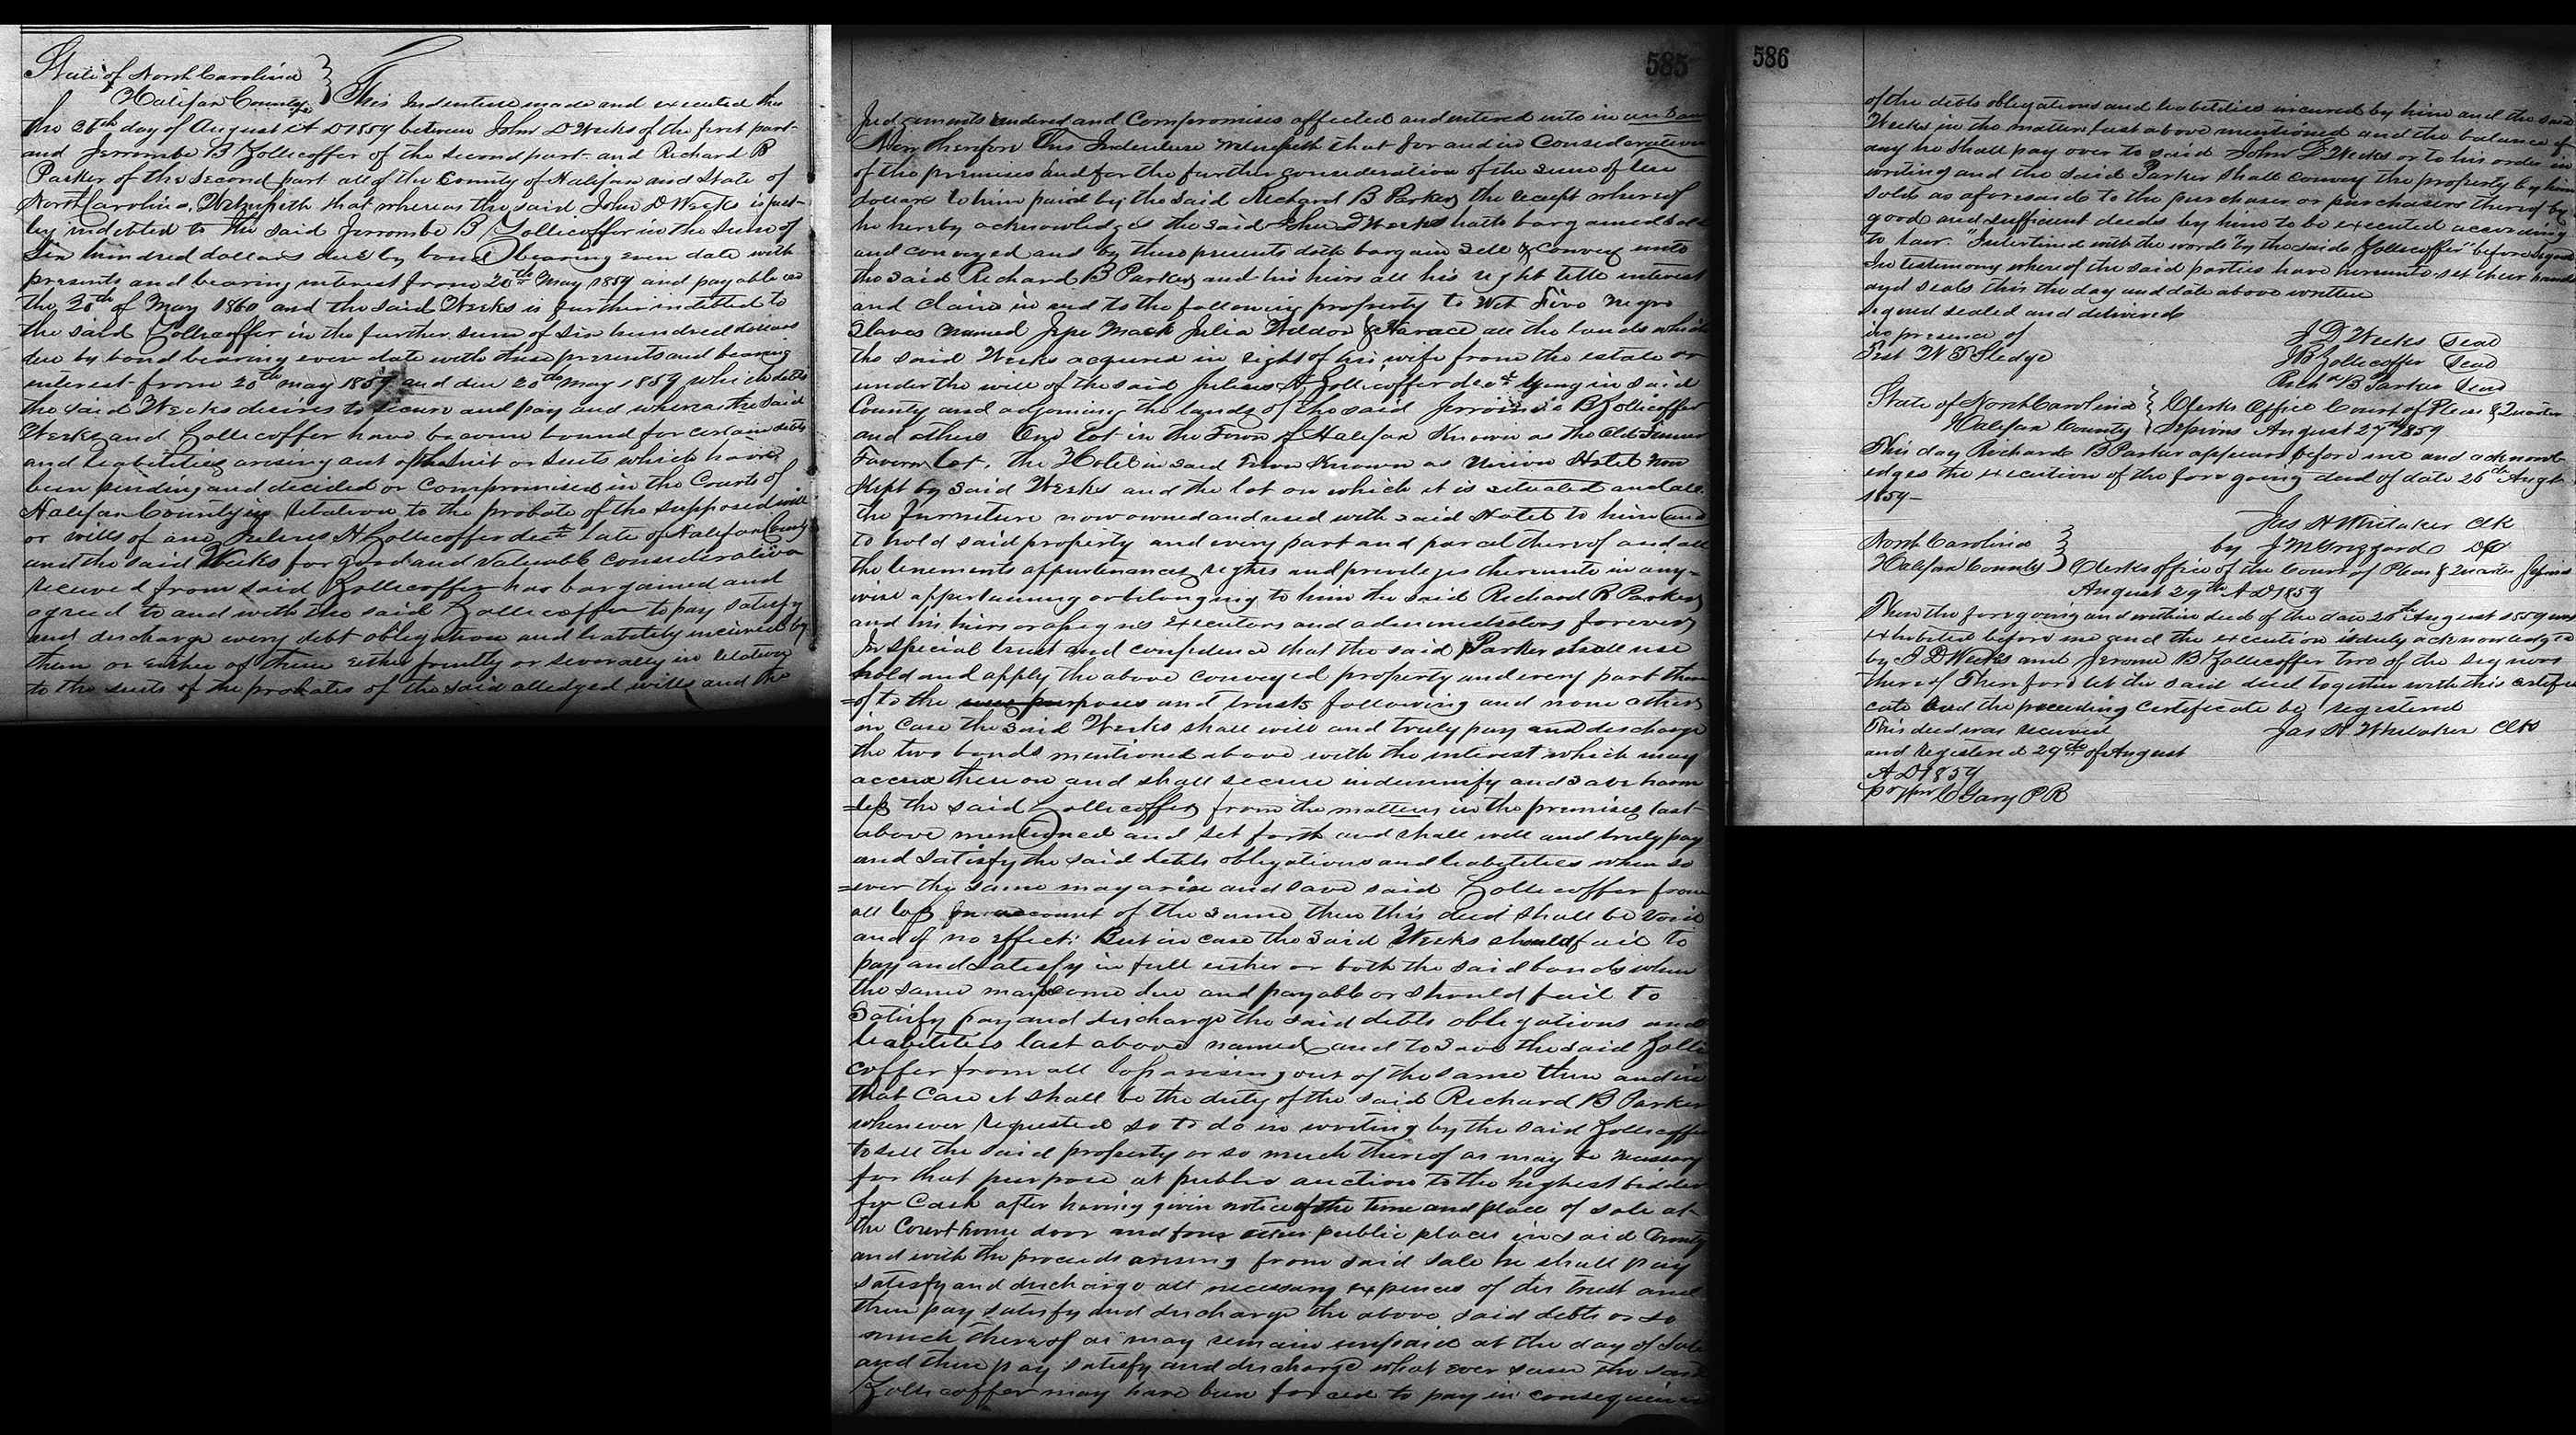 State of North Carolina
Halifax County This Indenture made and executed this
the 26th day of August A D 1859 between John D Weeks of the first part
and Jerrombe B Zollicoffer of the second part and Richard B
Parker of the second part all of the County of Halifax and State of
North Carolina, Witnesseth that whereas the said John D Weeks is just-
ly indebted to the said Jerrombe B Zollicoffer in the sum of
Six hundred dollars due by bond bearing even date with
presents and bearing interest from 20th May 1859 and payable on
the 20th of May 1860 and the said Weeks is further indebted to
the said Zollicoffer in the further sum of six hundred dollars
due by bond bearing even date with these presents and bearing
interest from 20th may 1859 and due 20th May 1859 which debts
the said Weeks desires to secure and pay and whereas the said
Weeks and Zollicoffer have become bound for certain debts
and liabilities arising out of the suit or suits which have
been pending and decided or compromised in the Courts of
Halifax County in relation to the probate of the supposed will
or wills of one Julius H Zollicoffer decd late of Halifax County
and the said Weeks for good and valuable consideration
received from said Zollicoffer has bargained and
agreed to and with the said Zollicoffer to pay satisfy
and discharge every debt obligation and liability incurred by
them or either of them either jointly or severally in relation
to the suits of the probates of the said alledged wills and the
585
Judgments rendered and Compromises affected and entered into in
Now therefore This Indenture Witnesseth that for and in Consideration
of the premises and for the further consideration of the sum of ten
dollars to him paid by the said Richard B Parker the receipt whereof
he hereby acknowledges the said John D Weeks hath bargained sold
and conveyed and by these presents doth bargain sell & convey unto
the said Richard B Parker and his heirs all his right title interest
and claim in and to the following property to Wit Five negro
Slaves named Mack Julia Weldon & Horace all the lands which
the said Weeks acquired in right of his wife from the estate or
under the will of the said Julius H Zollicoffer decd lying in said
County and adjoining the lands of the said Jerrombe B Zollicoffer
and others One lot in the Town of Halifax Known as the Old
Tavern lot, The Hotel in said Town Known as Union Hotel now
Kept by said Weeks and the lot on which it is situated and all
the furniture now owned and used with said Hotel to him and
to hold said property and every part and parcel thereof and all
the tenements appurtenances rights and privileges thereunto in any-
wise appertaining or belonging to him the said Richard B Parker
and his heirs or assignes executors and administrators forever
In special trust and confidence that the said Parker shall use
hold and apply the above conveyed property and every part there
=of to the uses purposes and trusts following and none other
in case the said Weeks shall well and truly pay and discharge
the two bonds mentioned above with the interest which may
accrue thereon and shall secure indemnify and save harm
=less the said Zollicoffer from the matters in the premises last
above mentioned and set forth and shall well and truly pay
and satisfy the said debts obligations and liabilities when so
=ever the same may arise and save said Zollicoffer from
all loss on account of the same then this deed shall be void
and of no effect: But in case the said Weeks should fail to
pay and satisfy in full either or both the said bonds when
the same may become due and payable or should fail to
Satisfy pay and discharge the said debts obligations and
liabilities last above named and to save the said Zolli
coffer from all loss arising out of the same then and in
that Case it shall be the duty of the said Richard B Parker
whenever requested so to do in writing by the said Zollicoffer
to sell the said property or so much thereof as may be necessary
for that purpose at public auction to the highest bidder
for Cash after having given notice of the time and place of sale at
the Courthouse door and four other public places in said County
and with the proceeds arising from said sale he shall pay
satisfy and discharge all necessary expences of this trust and
then pay satisfy and discharge the above said debts or so
much thereof as may remain unpaid at the day of sale
and then pay satisfy and discharge what ever sum the said
Zollicoffer may have been forced to pay in consequence
586
of the debts obligations and liabilities incurred by him and the said
Weeks in the matters last above mentioned and the balance if
any he shall pay over to said John D Weeks or to his order in
writing and the said Parker shall convey the property by him
sold as aforesaid to the purchaser or purchasers thereof by
good and sufficient deeds by him to be executed according
to law. "Interlined with the words "by the said Zollicoffer" before signed
In testimony whereof the said parties have hereunto set their hands
and seals this the day and date above written
signed sealed and delivered
in presence of
Test W T Sledge
J D Weeks Seal
J B Zollicoffer Seal
Richd B Parker Seal
State of North Carolina Clerks Office Court of Pleas & Quarter
Halifax County Sessions August 27th 1859
This day Richard B Parker appears before me and acknowl-
edges the execution of the foregoing deed of date 26th Augt
1859-
Jas H Whitaker Clk
by J M Grizzard DC
North Carolina
Halifax County Clerks office of the Court of Pleas & Quarter Sessions
August 29th A D 1859
Then the foregoing and within deed of the date 26th August 1859 was
exhibited before me and the execution is duly acknowledged
by J D Weeks and Jerome B Zollicoffer two of the signors
thereof Therefore let the said deed together with this certifi
cate and the preceeding certificate be registered
Jas H Whitaker Clk
This deed was received
and registered 29th of August
A D 1859
pr Wm C Gary P R